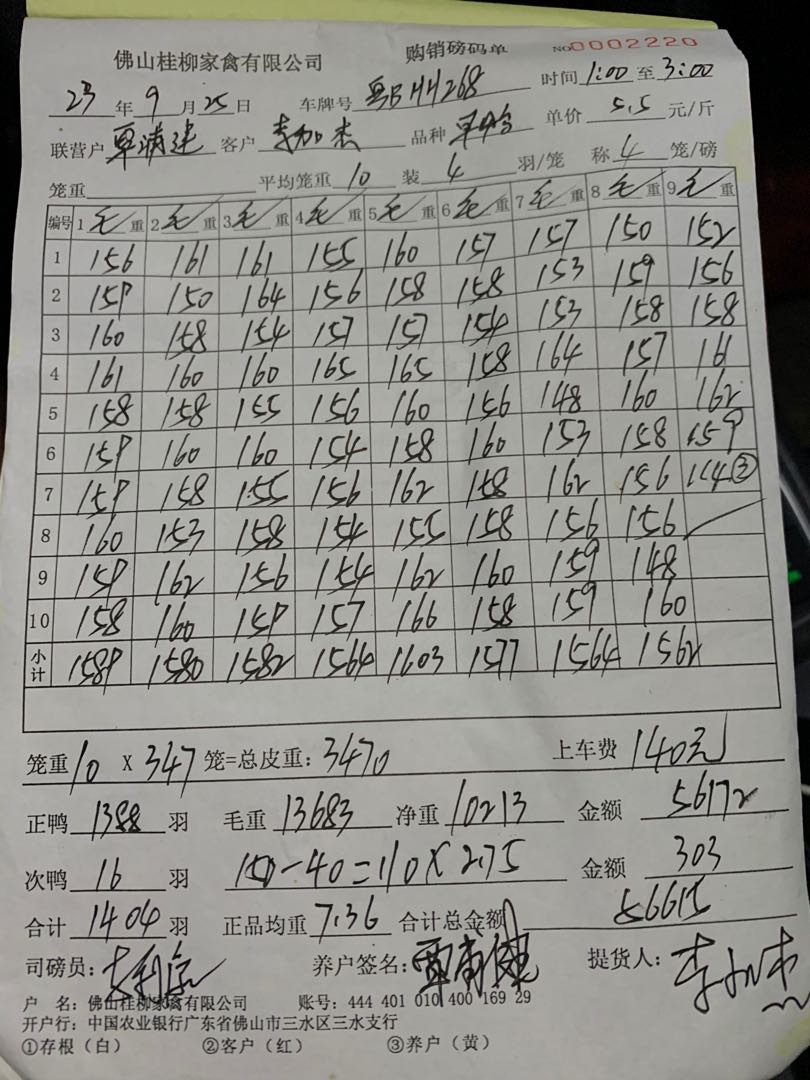 佛山桂柳家禽有限公司 购销磅码单 NO0002220
23年9月25日 车牌号 粤BHH268 时间1:00至3:00
联营户 覃清建 客户 李加杰 品种 单价5.5元/斤
笼重 平均笼重10 装4羽/笼 称4笼/磅
编号 1毛重 2毛重 3毛重 4毛重 5毛重 6毛重 7毛重 8毛重 9毛重
1 156 161 161 155 160 157 157 150 152
2 159 150 164 156 158 158 153 159 156
3 160 158 154 157 157 154 153 158 158
4 161 160 160 165 165 158 164 157 161
5 158 158 155 156 160 156 148 160 162
6 159 160 160 154 158 160 153 158 159
7 159 158 155 156 162 158 162 156 114③
8 160 153 158 154 155 158 156 156
9 159 162 156 154 162 160 159 148
10 158 160 159 157 166 158 159 160
小计 1589 1580 1582 1564 1603 1577 1564 1562
笼重10 X 347笼=总皮重:3470 上车费 140元
正鸭 1388 羽 毛重 13683 净重 10213 金额 56172
次鸭 16 羽 150-40=110X2.75 金额 303
合计 1404 羽 正品均重 7.36 合计总金额 56615
司磅员: 养户签名: 提货人:李加杰
户 名:佛山桂柳家禽有限公司 账号:444 401 010 400 169 29
开户行:中国农业银行广东省佛山市三水区三水支行
①存根(白) ②客户(红) ③养户(黄)